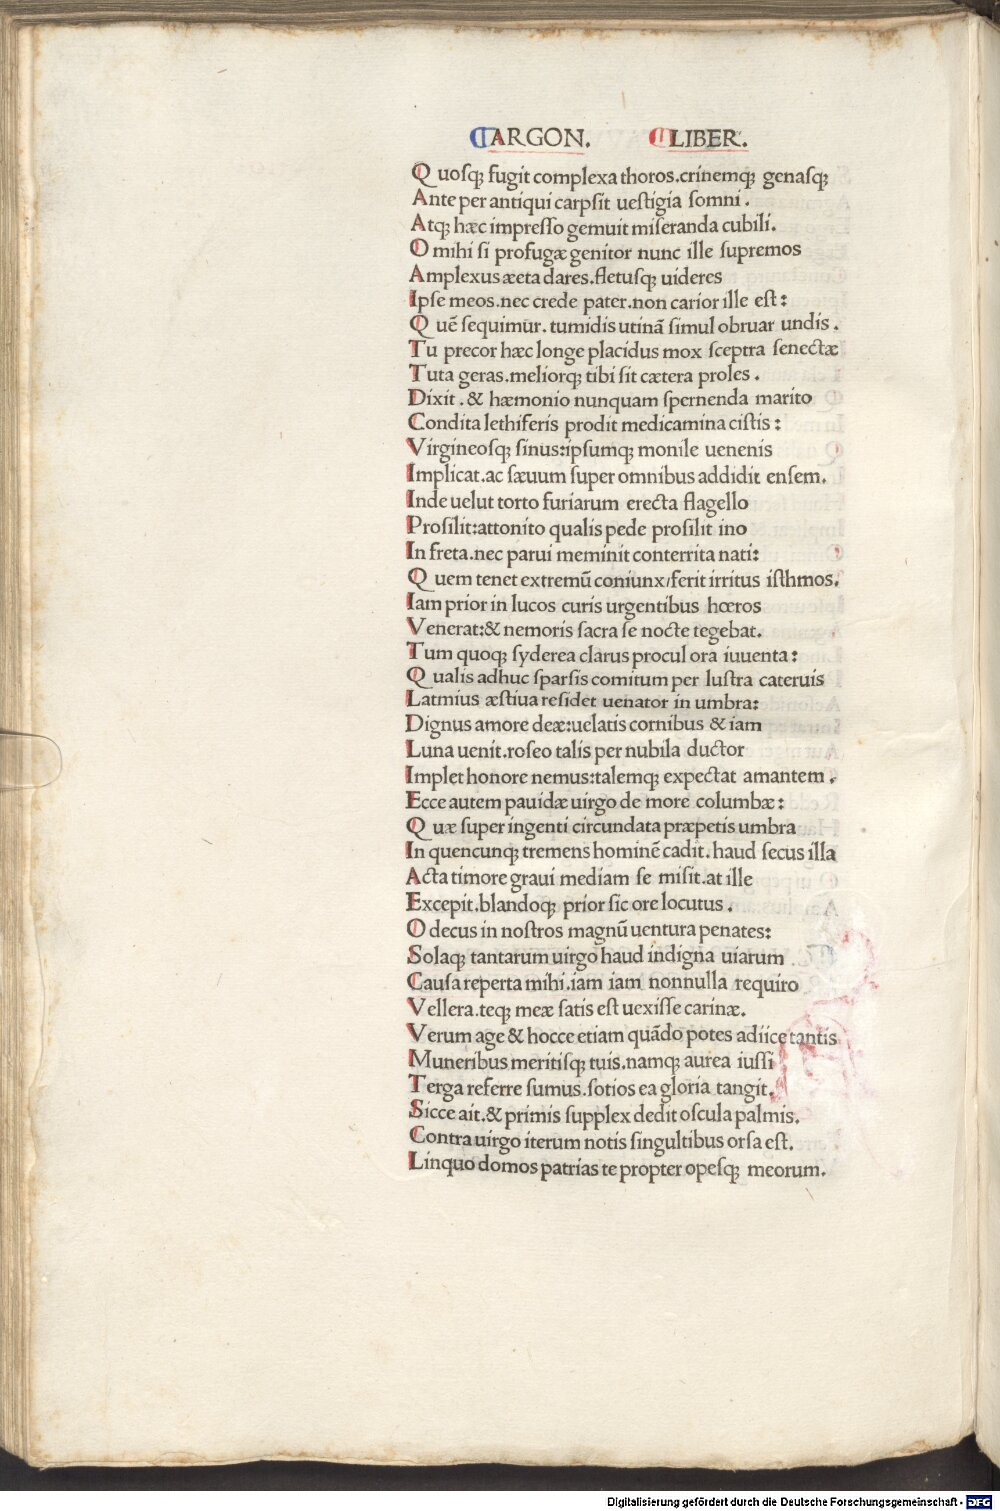 ARGON. LIBER.
Quosqꝫ fugit complexa thoros.crinemqꝫ genasqꝫ
Ante per antiqui carpsit uestigia somni.
Atqꝫ hæc impresso gemuit miseranda cubili.
O mihi si profugæ genitor nunc ille supremos
Amplexus æeta dares.fletusqꝫ uideres
Ipse meos.nec crede pater.non carior ille est:
Quē sequimur.tumidis utinā simul obruar undis.
Tu precor hæc longe placidus mox sceptra senectæ
Tuta geras.meliorqꝫ tibi sit cætera proles.
Dixit.& hæmonio nunquam spernenda marito
Condita lethiferis prodit medicamina cistis:
Virgineosqꝫ sinus:ipsumqꝫ monile uenenis
Implicat.ac sæuum super omnibus addidit ensem.
Inde uelut torto furiarum erecta flagello
Prosilit:attonito qualis pede prosilit ino
In freta.nec parui meminit conterrita nati:
Quem tenet extremū coniunx/ferit irritus isthmos.
Iam prior in lucos curis urgentibus hœros
Venerat:& nemoris sacra se nocte tegebat.
Tum quoqꝫ syderea clarus procul ora iuuenta:
Qualis adhuc sparsis comitum per lustra cateruis
Latmius æstiua residet uenator in umbra:
Dignus amore deæ:uelatis cornibus & iam
Luna uenit.roseo talis per nubila ductor
Implet honore nemus:talemqꝫ expectat amantem.
Ecce autem pauidæ uirgo de more columbæ:
Quæ super ingenti circundata præpetis umbra
In quencunqꝫ tremens hominē cadit.haud secus illa
Acta timore graui mediam se misit.at ille
Excepit.blandoqꝫ prior sic ore locutus.
O decus in nostros magnū uentura penates:
Solaqꝫ tantarum uirgo haud indigna uiarum
Causa reperta mihi.iam iam nonnulla requiro
Vellera.teqꝫ meæ satis est uexisse carinæ.
Verum age & hocce etiam quādo potes adiice tantis
Muneribus meritisqꝫ tuis.namqꝫ aurea iussi
Terga referre sumus.sotios ea gloria tangit.
Sicce ait.& primis supplex dedit oscula palmis.
Contra uirgo iterum notis singultibus orsa est.
Linquo domos patrias te propter opesqꝫ meorum.
Digitalisierung gefördert durch die Deutsche Forschungsgemeinschaft - DFG